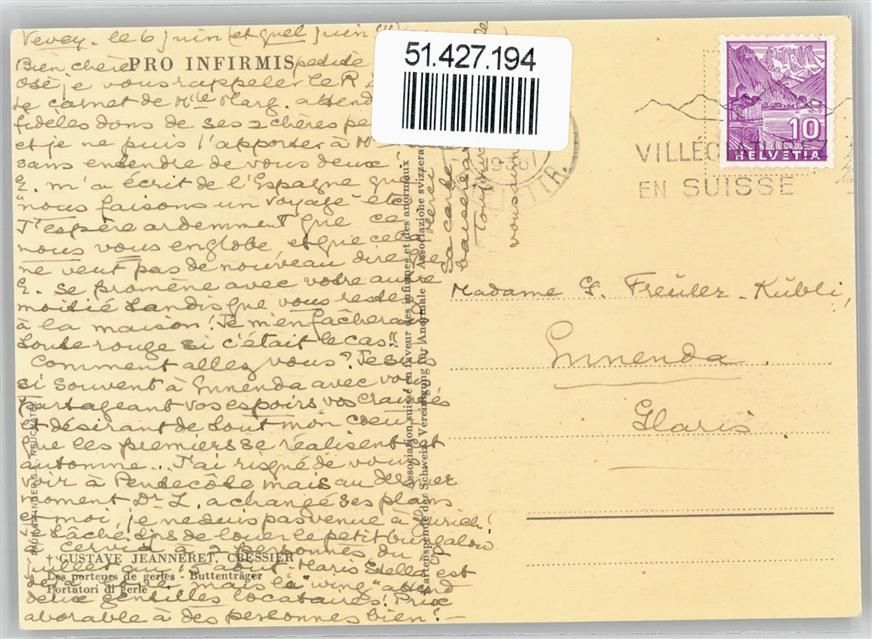 Vevey. le 6 juin (et quel juin !!!)
Bien chère
PRO INFIRMIS
Osé je vous rappeler le R
Le carnet de Mlle Marg. attend
fidèles dons de ses 2 chères
et je ne puis l'apporter à
sans entendre de vous deux
E. m'a écrit de l'Espagne que
"nous faisons un voyage
J'espère ardemment que ce
nous vous englobe et que cela
ne veut pas de nouveau dire que
E. se promène avec votre autre
moitié tandis que vous reste
à la maison! Je m'en fâcherais
toute rouge si c'était le cas?
Comment allez vous? Je suis
si souvent à Ennenda avec vous
partageant vos espoirs vos craintes
et désirant de tout mon cœur
que les premiers se réalisent cet
automne... J'ai risqué de vous
voir à Pentecôte mais au dernier
moment Dr L. a changé ses plans
et moi, je ne suis pas venue à Zurich!
de louer le petit bungalow
à 2 personnes du
juillet au 15 août. Maris Stella est
mais le "wing" attend
deux gentilles locataires! Prix
aborable à des personnes bien! –
† GUSTAVE JEANNERET, CRESSIER
Les porteurs de gerles - Buttenträger
Portatori di gerle
Association suisse en faveur des infirmes et des anormaux
Kartenspende der Schweiz. Vereinigung für Anormale Associazione svizzera
merci
51.427.194
10
HELVETIA
EN SUISSE
Madame G. Freuler-Kübli,
Ennenda
Glaris